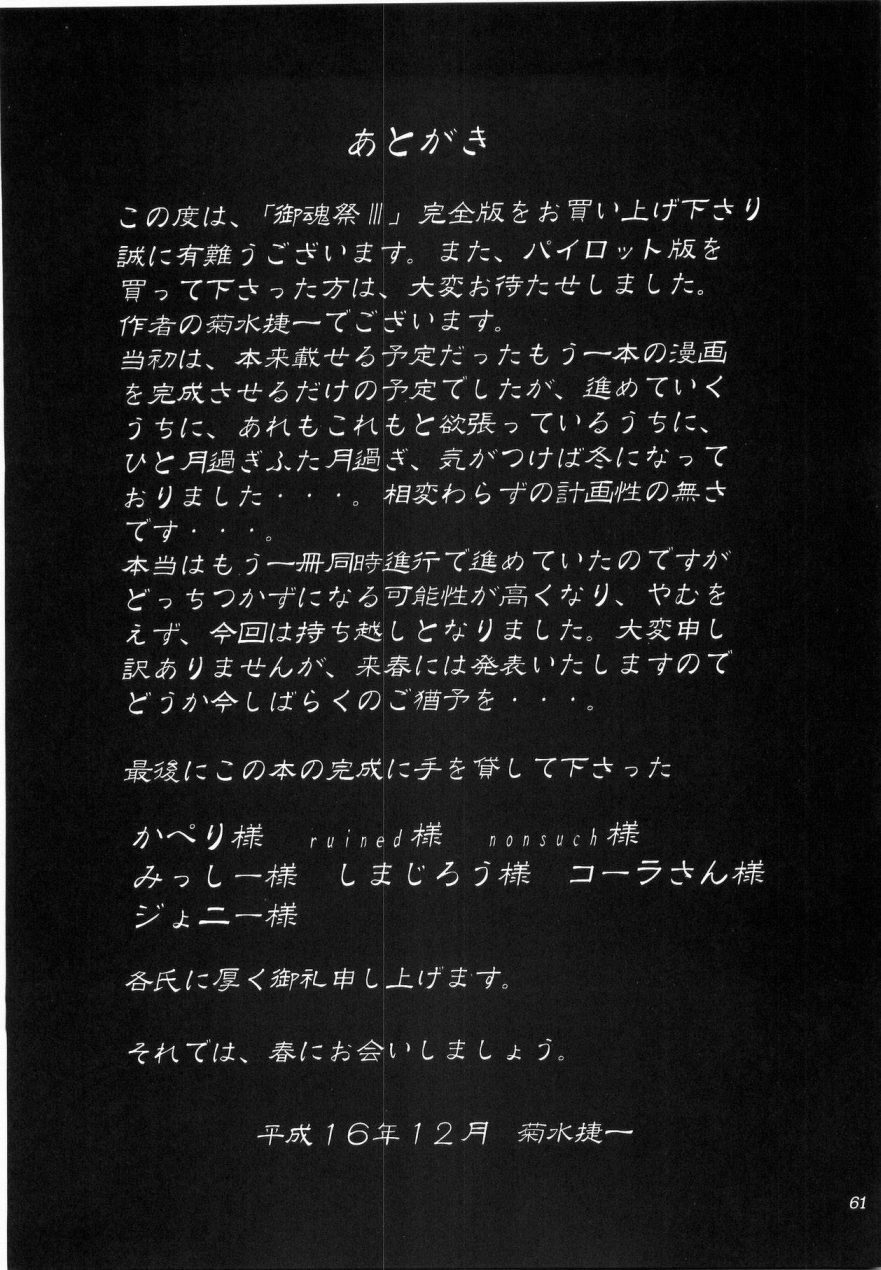 あとがき
この度は、「御魂祭Ⅲ」完全版をお買い上げ下さり
誠に有難うございます。また、パイロット版を
買って下さった方は、大変お待たせしました。
作者の菊水捷一でございます。
当初は、本来載せる予定だったもう一本の漫画
を完成させるだけの予定でしたが、進めていく
うちに、あれもこれもと欲張っているうちに、
ひと月過ぎふた月過ぎ、気がつけば冬になって
おりました・・・。相変わらずの計画性の無さ
です・・・。
本当はもう一冊同時進行で進めていたのですが
どっちつかずになる可能性が高くなり、やむを
えず、今回は持ち越しとなりました。大変申し
訳ありませんが、来春には発表いたしますので
どうか今しばらくのご猶予を・・・。
最後にこの本の完成に手を貸して下さった
かぺり様　ruined様　nonsuch様
みっしー様　しまじろう様　コーラさん様
ジョニー様
各氏に厚く御礼申し上げます。
それでは、春にお会いしましょう。
平成１６年１２月　菊水捷一
61